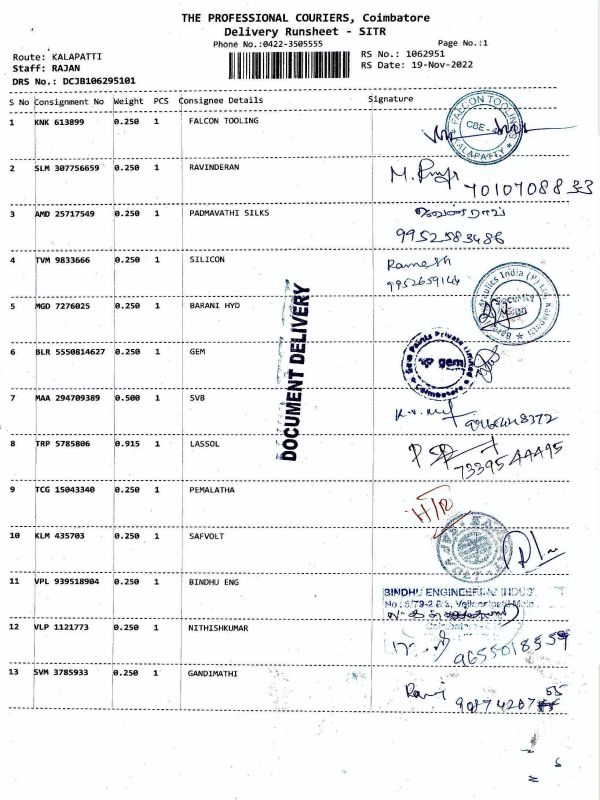 THE PROFESSIONAL COURIERS, Coimbatore
Delivery Runsheet - SITR
Phone No.:0422-3505555 Page No.:1
Route: KALAPATTI RS No.: 1062951
Staff: RAJAN RS Date: 19-Nov-2022
DRS No.: DCJB106295101
S No Consignment No Weight PCS Consignee Details Signature
1 KNK 613899 0.250 1 FALCON TOOLING
FALCON TOOLINGS
CBE -
KALAPATTY
2 SLM 307756659 0.250 1 RAVINDERAN
7010708833
3 AMD 25717549 0.250 1 PADMAVATHI SILKS
9952583486
4 TVM 9833666 0.250 1 SILICON Ramesh
9952659144
5 MGD 7276025 0.250 1 BARANI HYD
Security
DOCUMENT DELIVERY
6 BLR 5550814627 0.250 1 GEM
Gem Paints Private Limited
gem
Coimbatore
7 MAA 294709389 0.500 1 SVB
8 TRP 5785806 0.915 1 LASSOL
7339544495
9 TCG 15043340 0.250 1 PEMALATHA
10 KLM 435703 0.250 1 SAFVOLT
11 VPL 939518904 0.250 1 BINDHU ENG BINDHU ENGINEERING INDUS
12 VLP 1121773 0.250 1 NITHISHKUMAR
9655018559
13 SVM 3785933 0.250 1 GANDIMATHI